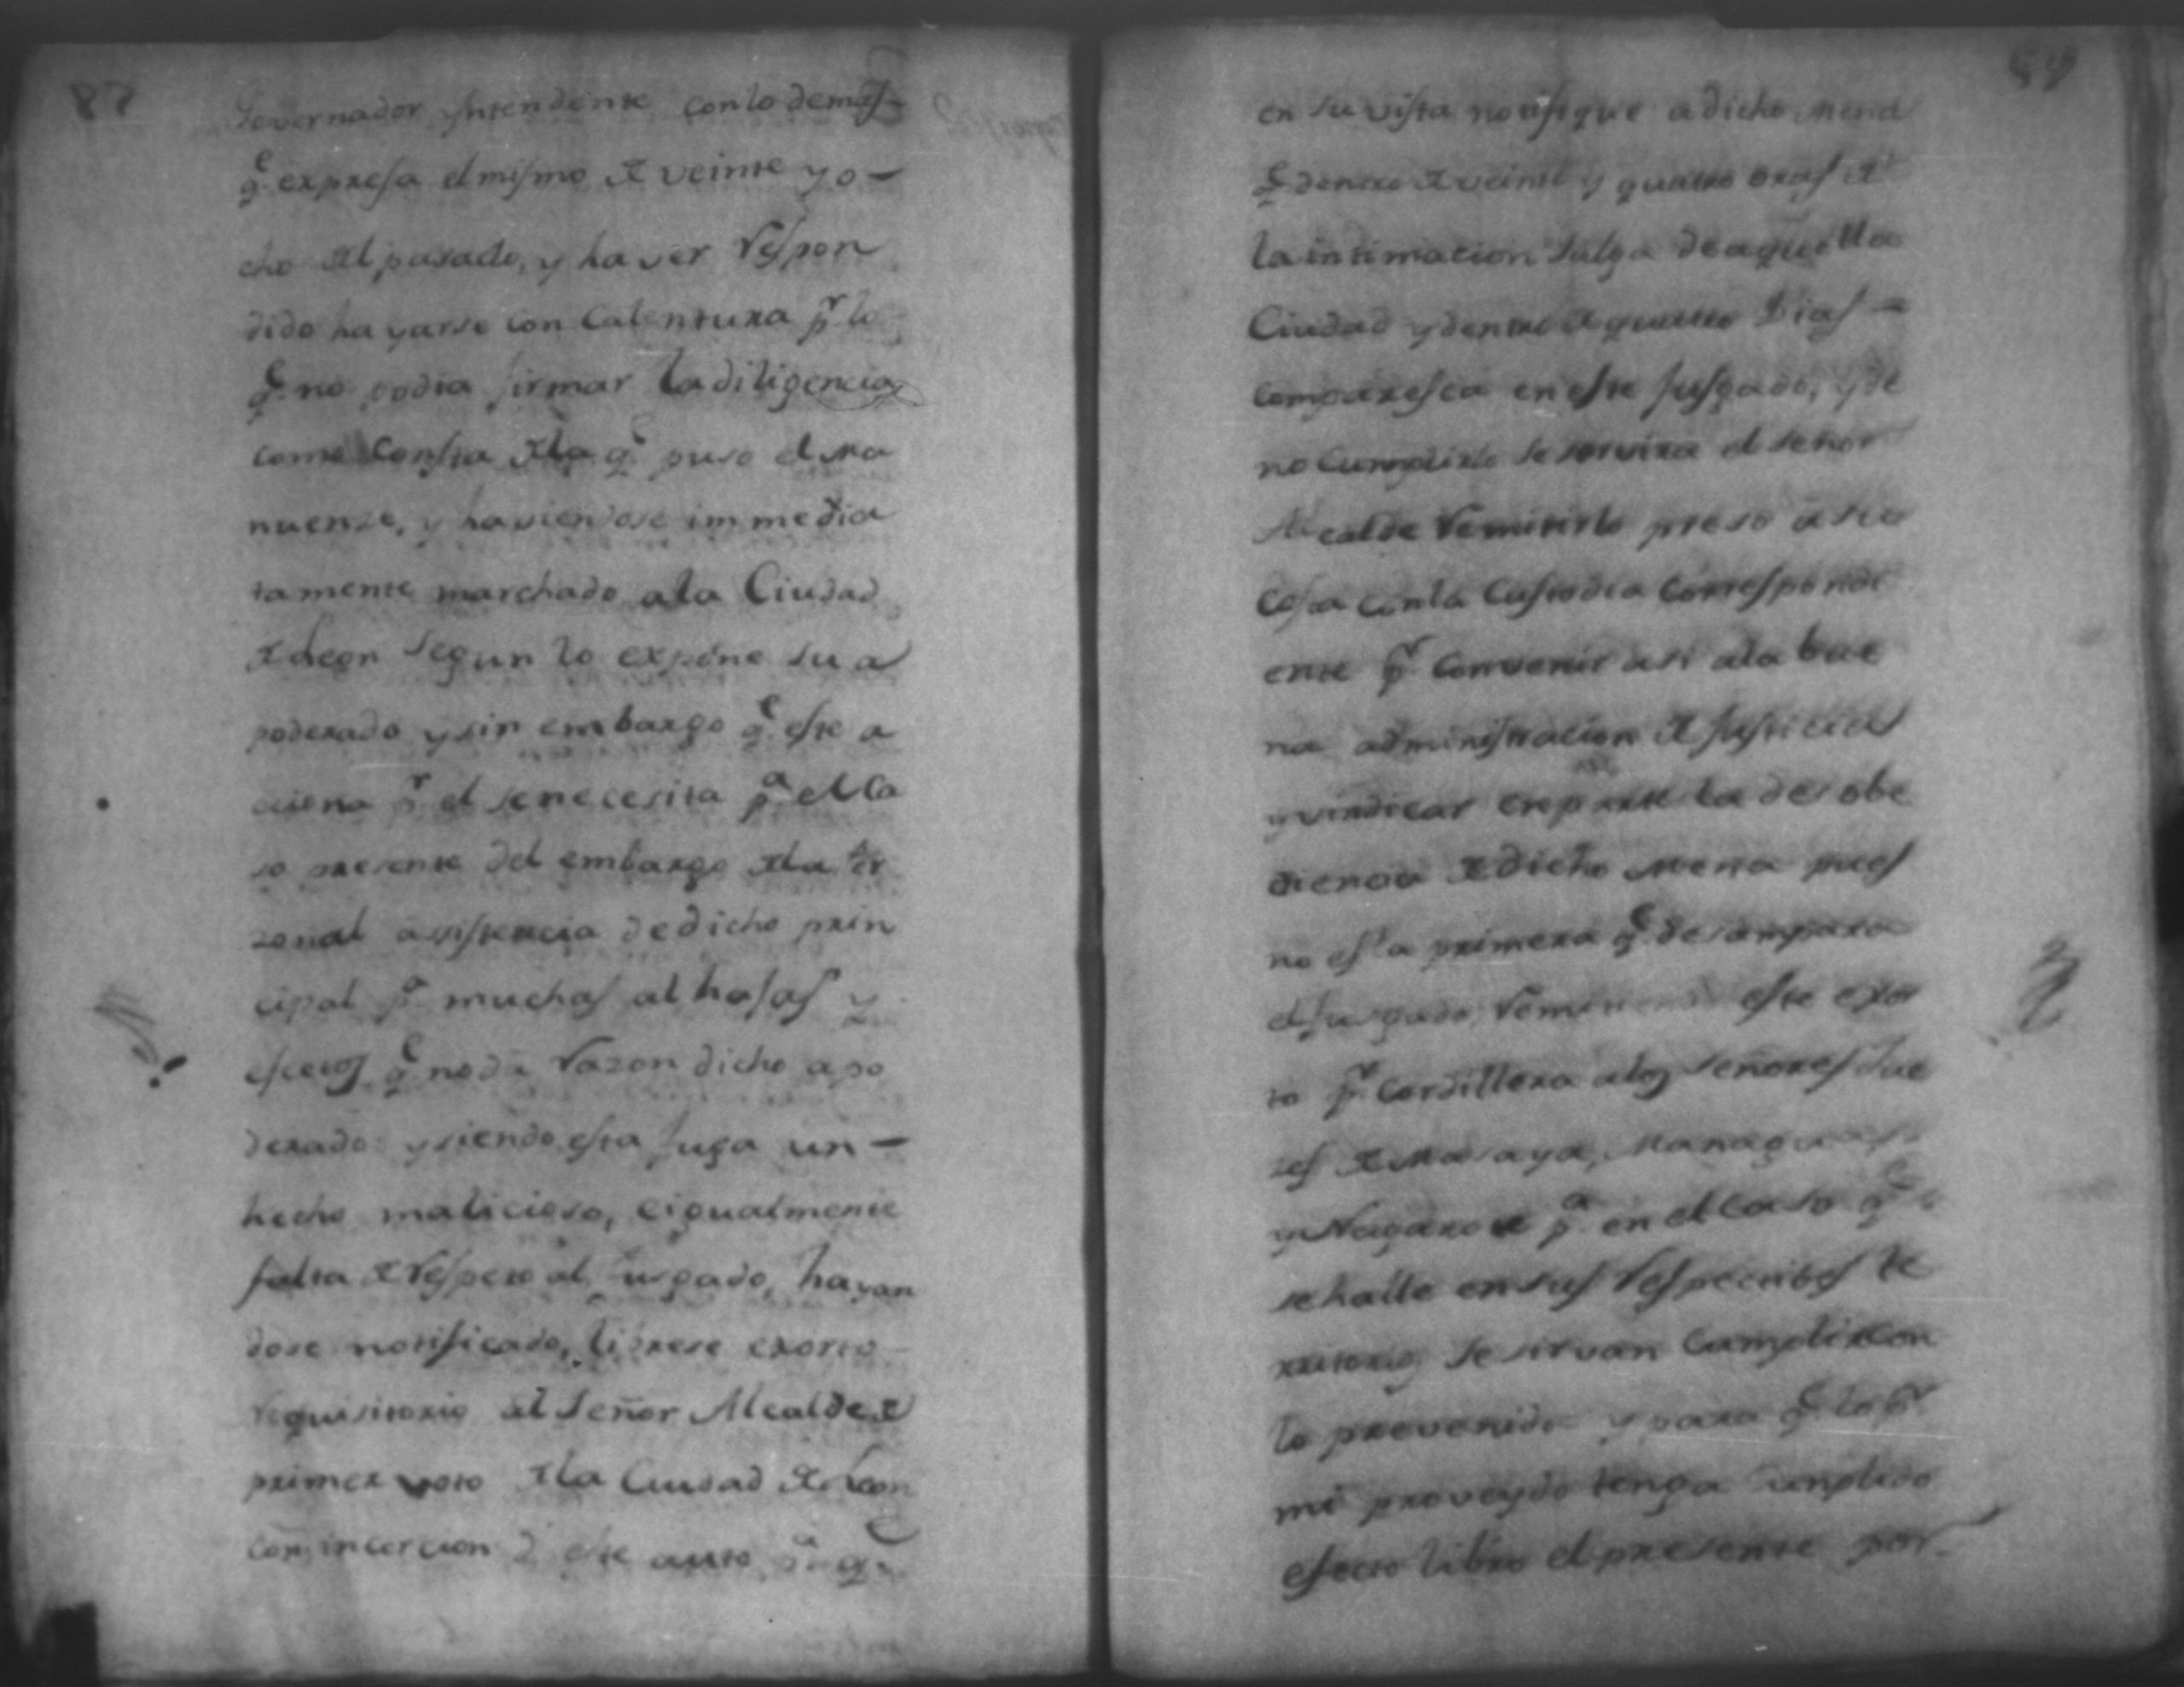 Governador yntendente con lo demas
q.e expresa el mismo de veinte y o-
cho del pasado, y haver respon
dido hayarse con Calentura p.r lo
q.e no podia firmar la diligencia
como Consta de la q.e puso el
nuense, y haviendose immedia
tamente marchado a la Ciudad
de Leon segun lo expone su a
poderado y sin embargo q.e este a
cciona p.r el se necesita p.a el Ca
so presente del embargo de la
zonal asistencia de dicho prin
cipal p.a muchas alhasas y
efectos q.e no da razon dicho apo
derado y siendo esta fuga un-
hecho malicioso, e igualmente
falta de respeto al jusgado, hayan
dose notificado, librese exorto
requisitorio al Señor Alcalde de
primer voto de la Ciudad de Leon
con incercion d este auto p.a q.e
58
59
en su vista notifique a dicho Mena
q.e dentro de veinte y quatro oras de
la intimacion salga de aquella
Ciudad y dentro de quatro Dias -
comparesca en este Jusgado, y de
no Cumplirlo se servira el señor
Alcalde remitirlo preso a su
Costa con la Custodia Correspondi
ente p.r Convenir asi a la bue
na administracion de Justicia
y vindicar en parte la desobe
diencia de dicho Mena pues
no es la primera q.e desampara
el Jusgado este exor
to p.r Cordillera a los señores Jue
zes de Masaya, Managua
y Nagarote p.a en el Caso q.e
se halle en sus respectibos te
rritorios se sirvan Cumplir con
lo prevenido y para q.e lo p.r
mi proveydo tenga Cunplido
efecto libro el presente por